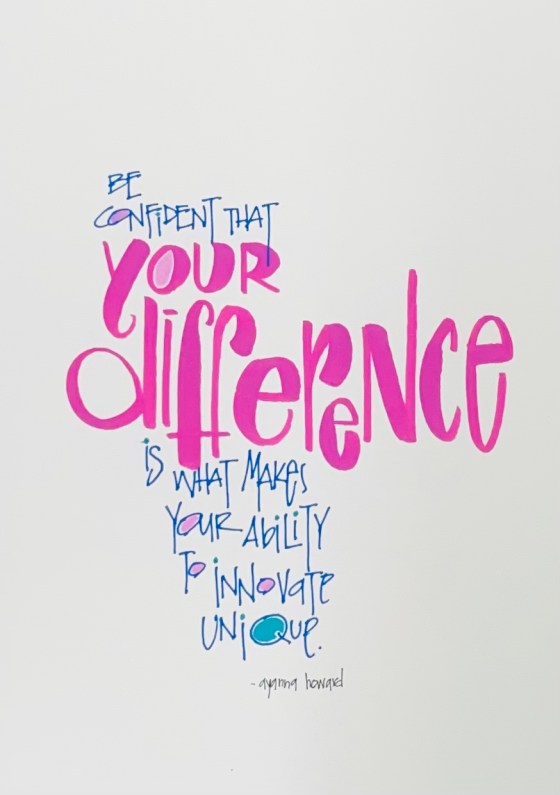 BE
CONFIDENT THAT
YOUR
difference
is WHAT MAKES
YOUR AbiLiTY
TO iNNOVATE
UNiQUe.
- ayanna howard